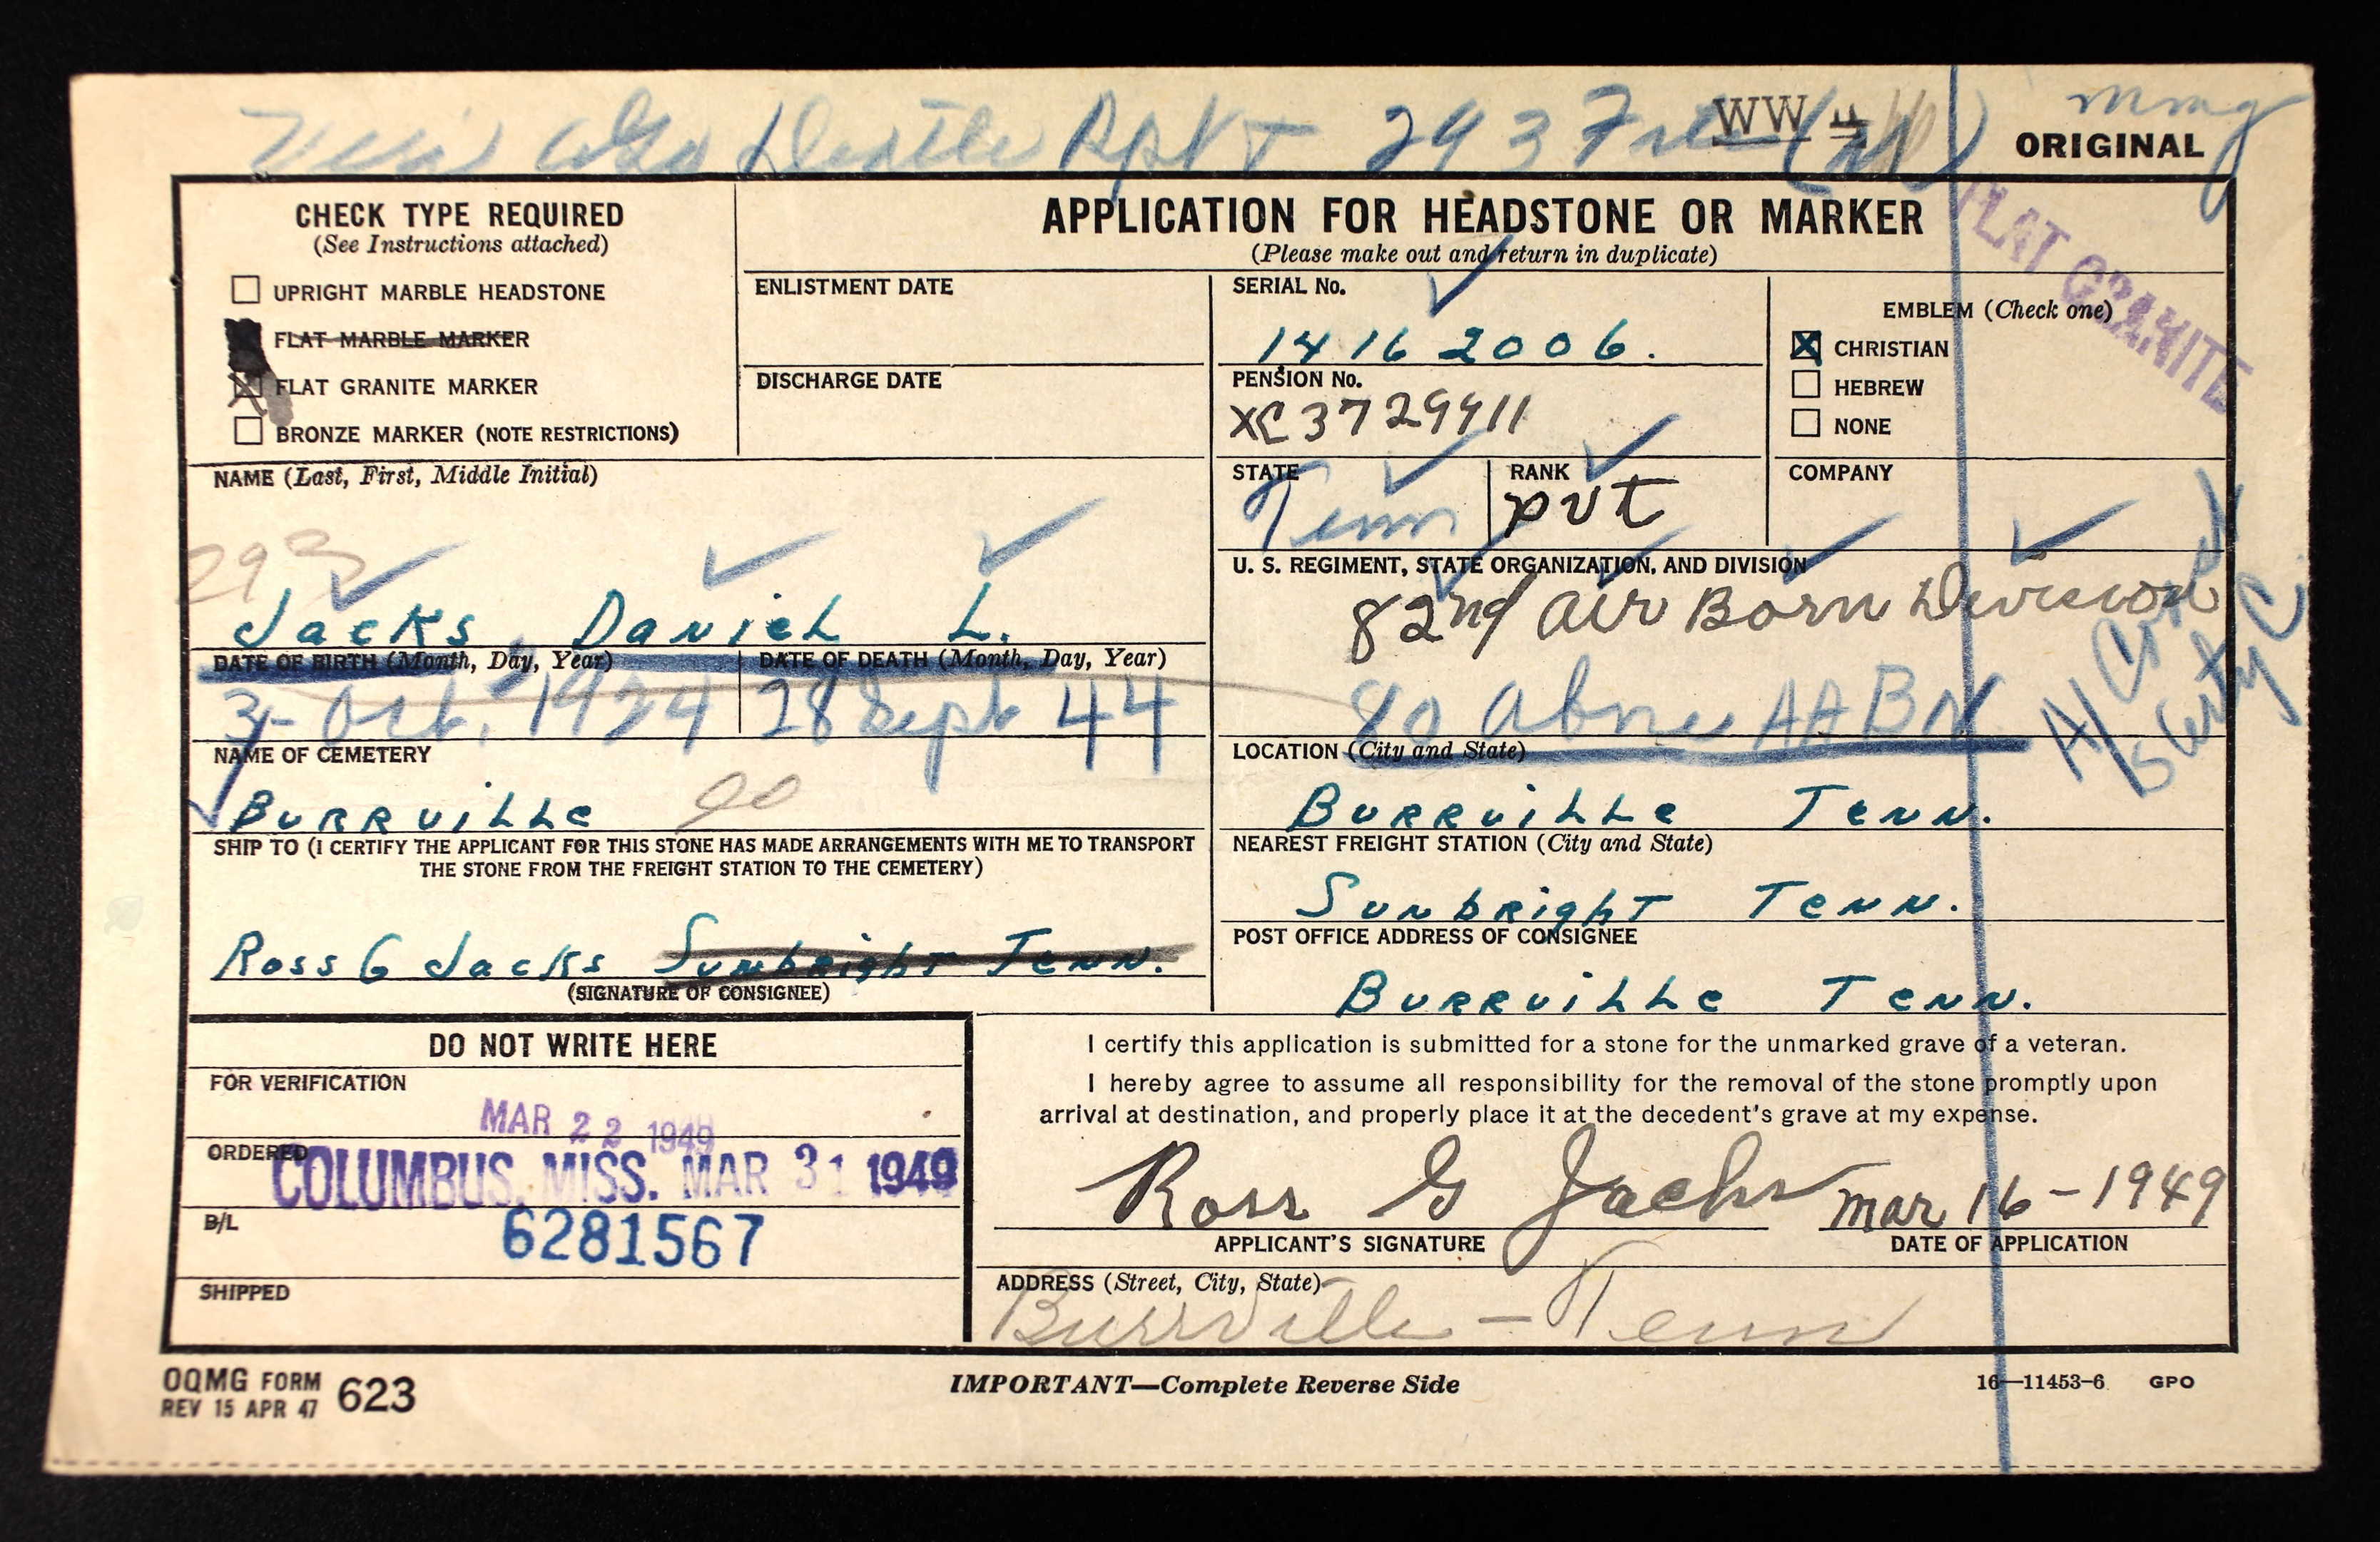 Death Rpt 293 File
WW II
mmg
ORIGINAL
FLAT GRANITE
CHECK TYPE REQUIRED
(See Instructions attached)
UPRIGHT MARBLE HEADSTONE
FLAT MARBLE MARKER
FLAT GRANITE MARKER
BRONZE MARKER (NOTE RESTRICTIONS)
APPLICATION FOR HEADSTONE OR MARKER
(Please make out and return in duplicate)
ENLISTMENT DATE
DISCHARGE DATE
SERIAL No.
14162006.
PENSION No.
XC3729911
EMBLEM (Check one)
X CHRISTIAN
HEBREW
NONE
NAME (Last, First, Middle Initial)
293
Jacks, Daniel L.
STATE
Tenn
RANK
pvt
COMPANY
U. S. REGIMENT, STATE ORGANIZATION, AND DIVISION
82nd Air Born Division
80 Abne AA BN
DATE OF BIRTH (Month, Day, Year)
3 Oct, 1924
DATE OF DEATH (Month, Day, Year)
28 Sept 44
NAME OF CEMETERY
Burrville
LOCATION (City and State)
Burrville Tenn.
SHIP TO (I CERTIFY THE APPLICANT FOR THIS STONE HAS MADE ARRANGEMENTS WITH ME TO TRANSPORT
THE STONE FROM THE FREIGHT STATION TO THE CEMETERY)
Ross G Jacks Sunbright Tenn.
(SIGNATURE OF CONSIGNEE)
NEAREST FREIGHT STATION (City and State)
Sunbright Tenn.
POST OFFICE ADDRESS OF CONSIGNEE
Burrville Tenn.
DO NOT WRITE HERE
FOR VERIFICATION
MAR 22 1949
ORDERED
COLUMBUS, MISS. MAR 31 1949
B/L
6281567
SHIPPED
I certify this application is submitted for a stone for the unmarked grave of a veteran.
I hereby agree to assume all responsibility for the removal of the stone promptly upon
arrival at destination, and properly place it at the decedent's grave at my expense.
Ross G Jacks
Mar 16-1949
APPLICANT'S SIGNATURE
DATE OF APPLICATION
ADDRESS (Street, City, State)
Burrville - Tenn
OQMG FORM 623
REV 15 APR 47
IMPORTANT—Complete Reverse Side
16—11453-6 GPO